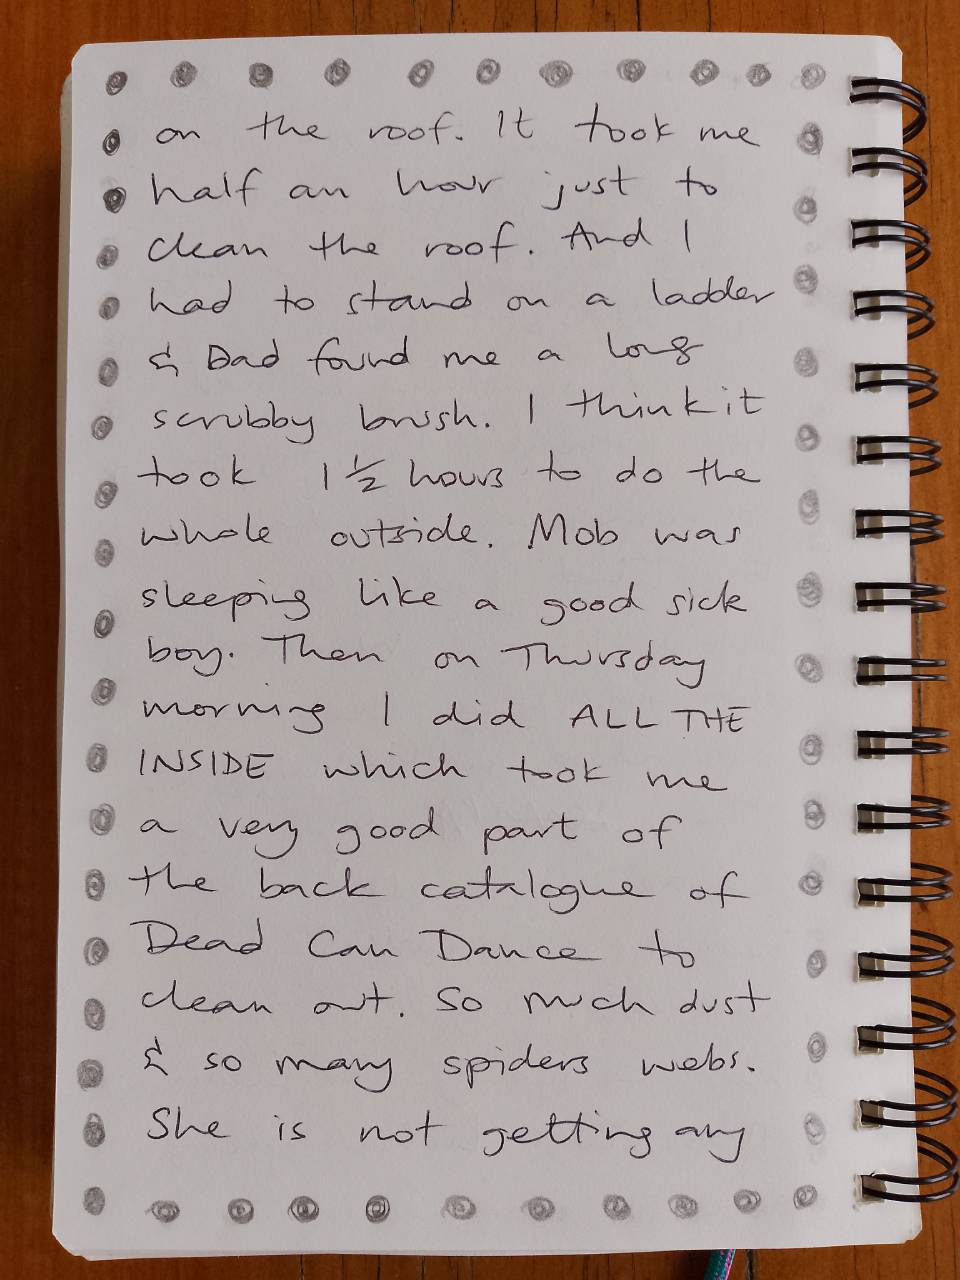 on the roof. It took me
half an hour just to
clean the roof. And I
had to stand on a ladder
& Dad found me a long
scrubby brush. I think it
took 1 ½ hours to do the
whole outside. Mob was
sleeping like a good sick
boy. Then on Thursday
morning I did ALL THE
INSIDE which took me
a very good part of
the back catalogue of
Dead Can Dance to
clean out. So much dust
& so many spiders webs.
She is not getting any